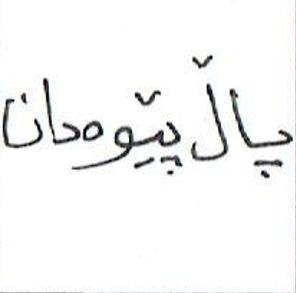 پاڵ پێوەدان